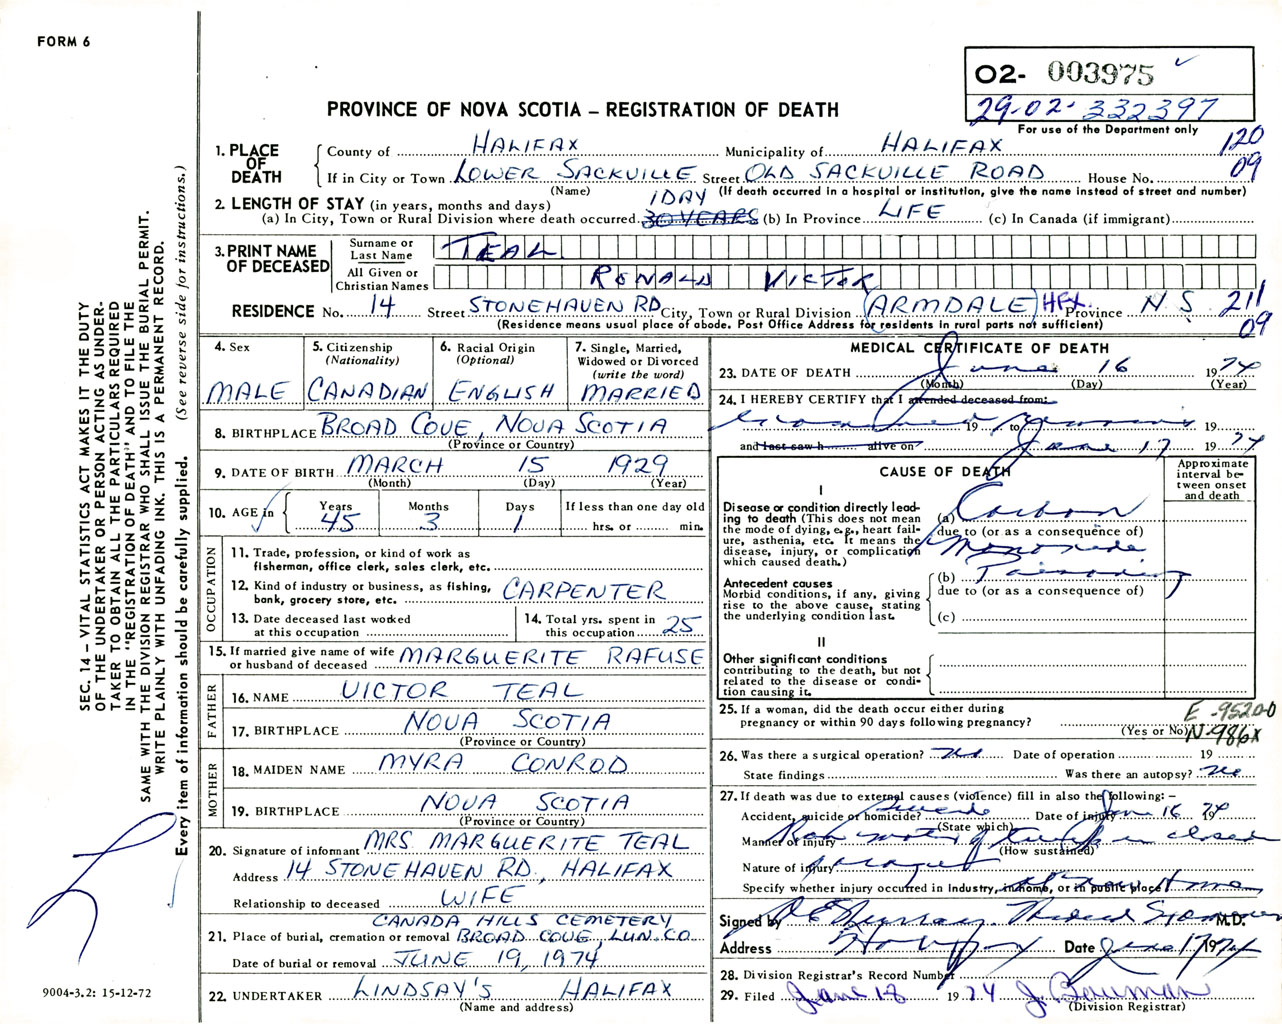 FORM 6
O2- 003975
29-02-332397
For use of the Department only
PROVINCE OF NOVA SCOTIA – REGISTRATION OF DEATH
120
09
1. PLACE OF DEATH
County of HALIFAX Municipality of HALIFAX
If in City or Town LOWER SACKVILLE Street OLD SACKVILLE ROAD House No.
(Name) (If death occurred in a hospital or institution, give the name instead of street and number)
2. LENGTH OF STAY (in years, months and days) 1 DAY
(a) In City, Town or Rural Division where death occurred 30 YEARS (b) In Province LIFE (c) In Canada (if immigrant)
3. PRINT NAME OF DECEASED
Surname or Last Name TEAL
All Given or Christian Names RONALD VICTOR
RESIDENCE No. 14 Street STONEHAVEN RD City, Town or Rural Division (ARMDALE) HFX. Province N S 211
09
(Residence means usual place of abode. Post Office Address for residents in rural parts not sufficient)
4. Sex MALE
5. Citizenship (Nationality) CANADIAN
6. Racial Origin (Optional) ENGLISH
7. Single, Married, Widowed or Divorced (write the word) MARRIED
8. BIRTHPLACE BROAD COVE, NOVA SCOTIA
(Province or Country)
9. DATE OF BIRTH MARCH 15 1929
(Month) (Day) (Year)
10. AGE in Years 45 Months 3 Days 1 If less than one day old hrs. or min.
OCCUPATION
11. Trade, profession, or kind of work as fisherman, office clerk, sales clerk, etc.
12. Kind of industry or business, as fishing, bank, grocery store, etc. CARPENTER
13. Date deceased last worked at this occupation
14. Total yrs. spent in this occupation 25
15. If married give name of wife or husband of deceased MARGUERITE RAFUSE
FATHER
16. NAME VICTOR TEAL
17. BIRTHPLACE NOVA SCOTIA
(Province or Country)
MOTHER
18. MAIDEN NAME MYRA CONROD
19. BIRTHPLACE NOVA SCOTIA
(Province or Country)
20. Signature of informant MRS MARGUERITE TEAL
Address 14 STONEHAVEN RD, HALIFAX
Relationship to deceased WIFE
CANADA HILLS CEMETERY
21. Place of burial, cremation or removal BROAD COVE, LUN. CO.
Date of burial or removal JUNE 19, 1974
22. UNDERTAKER LINDSAY'S HALIFAX
(Name and address)
MEDICAL CERTIFICATE OF DEATH
23. DATE OF DEATH June 16 1974
(Month) (Day) (Year)
24. I HEREBY CERTIFY that I attended deceased from:
19 to 19
and last saw h alive on June 17 1974
CAUSE OF DEATH
Approximate interval between onset and death
I
Disease or condition directly leading to death (This does not mean the mode of dying, e.g., heart failure, asthenia, etc. It means the disease, injury, or complication which caused death.)
(a) Carbon
due to (or as a consequence of)
Monoxide
Antecedent causes
Morbid conditions, if any, giving rise to the above cause, stating the underlying condition last.
(b) Poisoning
due to (or as a consequence of)
(c)
II
Other significant conditions contributing to the death, but not related to the disease or condition causing it.
25. If a woman, did the death occur either during pregnancy or within 90 days following pregnancy?
(Yes or No)
E-9520-0
N-986X
26. Was there a surgical operation? No Date of operation 19
State findings Was there an autopsy? No
27. If death was due to external causes (violence) fill in also the following: –
Accident, suicide or homicide? Suicide Date of injury June 16 1974
(State which)
Manner of injury Ran motor of car in closed
(How sustained)
Nature of injury garage
Specify whether injury occurred in Industry, in home, or in public place
Signed by Medical Examiner M.D.
Address Halifax Date June 17 1974
28. Division Registrar's Record Number
29. Filed June 18 1974 J. Bauman
(Division Registrar)
SEC. 14 – VITAL STATISTICS ACT MAKES IT THE DUTY
OF THE UNDERTAKER OR PERSON ACTING AS UNDER-
TAKER TO OBTAIN ALL THE PARTICULARS REQUIRED
IN THE "REGISTRATION OF DEATH" AND TO FILE THE
SAME WITH THE DIVISION REGISTRAR WHO SHALL ISSUE THE BURIAL PERMIT.
WRITE PLAINLY WITH UNFADING INK. THIS IS A PERMANENT RECORD.
Every item of information should be carefully supplied. (See reverse side for instructions.)
9004-3.2: 15-12-72